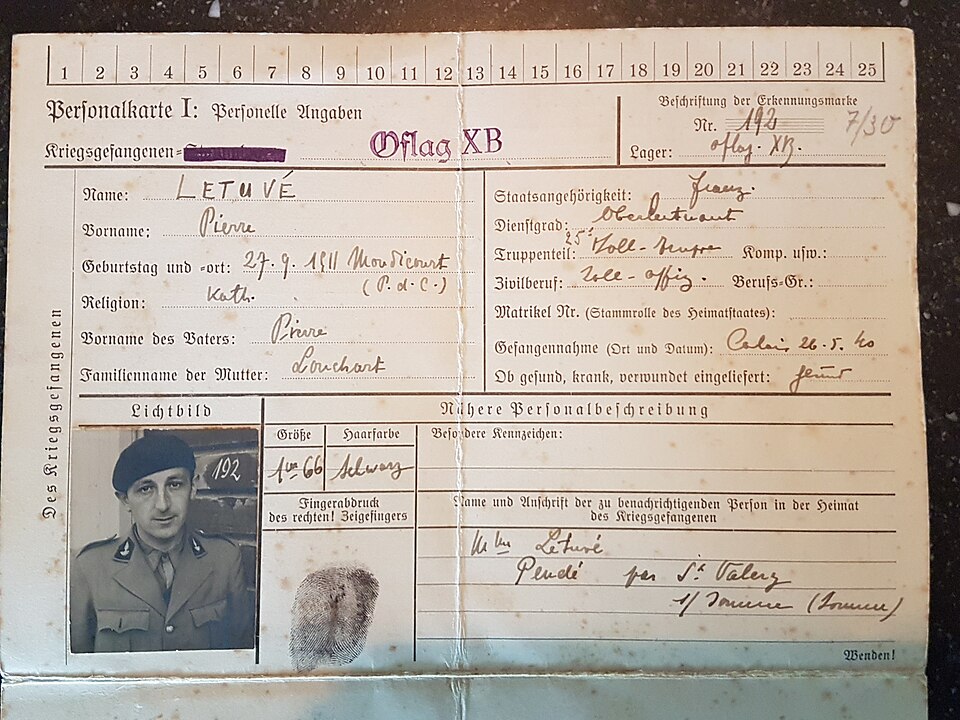 1 2 3 4 5 6 7 8 9 10 11 12 13 14 15 16 17 18 19 20 21 22 23 24 25
Personalkarte I: Personelle Angaben
Kriegsgefangenen=
Oflag XB
Beschriftung der Erkennungsmarke
Nr. 192
7/30
Lager: Oflag. XB.
Des Kriegsgefangenen
Name: LETUVÉ
Vorname: Pierre
Geburtstag und =ort: 27. 9. 1911 Mondicourt
(P. d. C.)
Religion: Kath.
Vorname des Vaters: Pierre
Familienname der Mutter: Louchart
Staatsangehörigkeit: franz.
Dienstgrad: Oberleutnant
Truppenteil: 25 Zoll- Komp. usw.:
Zivilberuf: Zoll-offiz. Berufs=Gr.:
Matrikel Nr. (Stammrolle des Heimatstaates):
Gefangennahme (Ort und Datum): Calais 26. 5. 40
Ob gesund, krank, verwundet eingeliefert: gesund
Lichtbild
192
Nähere Personalbeschreibung
Größe Haarfarbe Besondere Kennzeichen:
1m 66 schwarz
Fingerabdruck
des rechten! Zeigefingers
Name und Anschrift der zu benachrichtigenden Person in der Heimat
des Kriegsgefangenen
Mme Letuvé
Pendé par St Valery
s/ Somme (Somme)
Wenden!